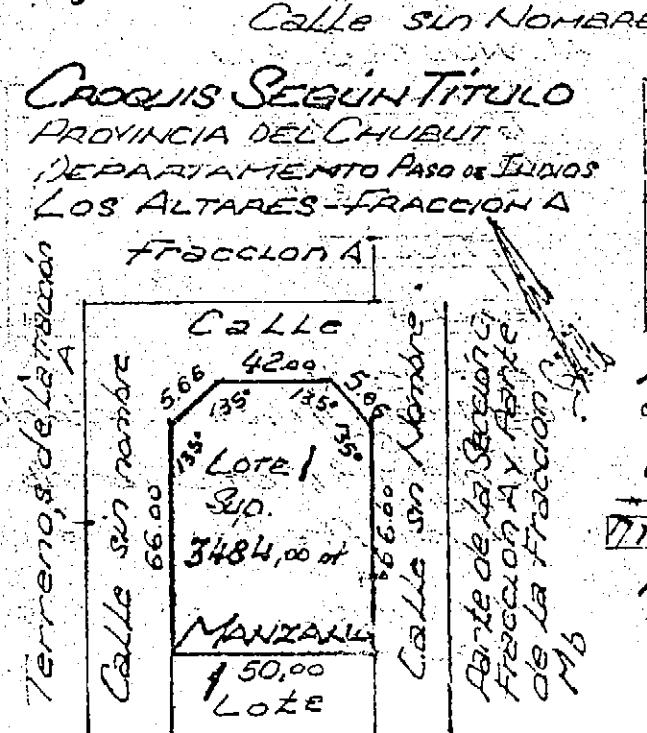 Calle sin Nombre
CROQUIS SEGÚN TÍTULO
PROVINCIA DEL CHUBUT
DEPARTAMENTO PASO DE INDIOS
LOS ALTARES - FRACCION A
Fraccion A
Terrenos de la Fracción
A
Calle sin nombre
Calle
42.00
5.66
5.66
135°
135°
135°
135°
66.00
66.00
Lote 1
Sup.
3484,00 m²
MANZANA
1
50,00
Lote
Calle sin Nombre
Parte de la Sección
Fracción A y Parte
de la Fraccion